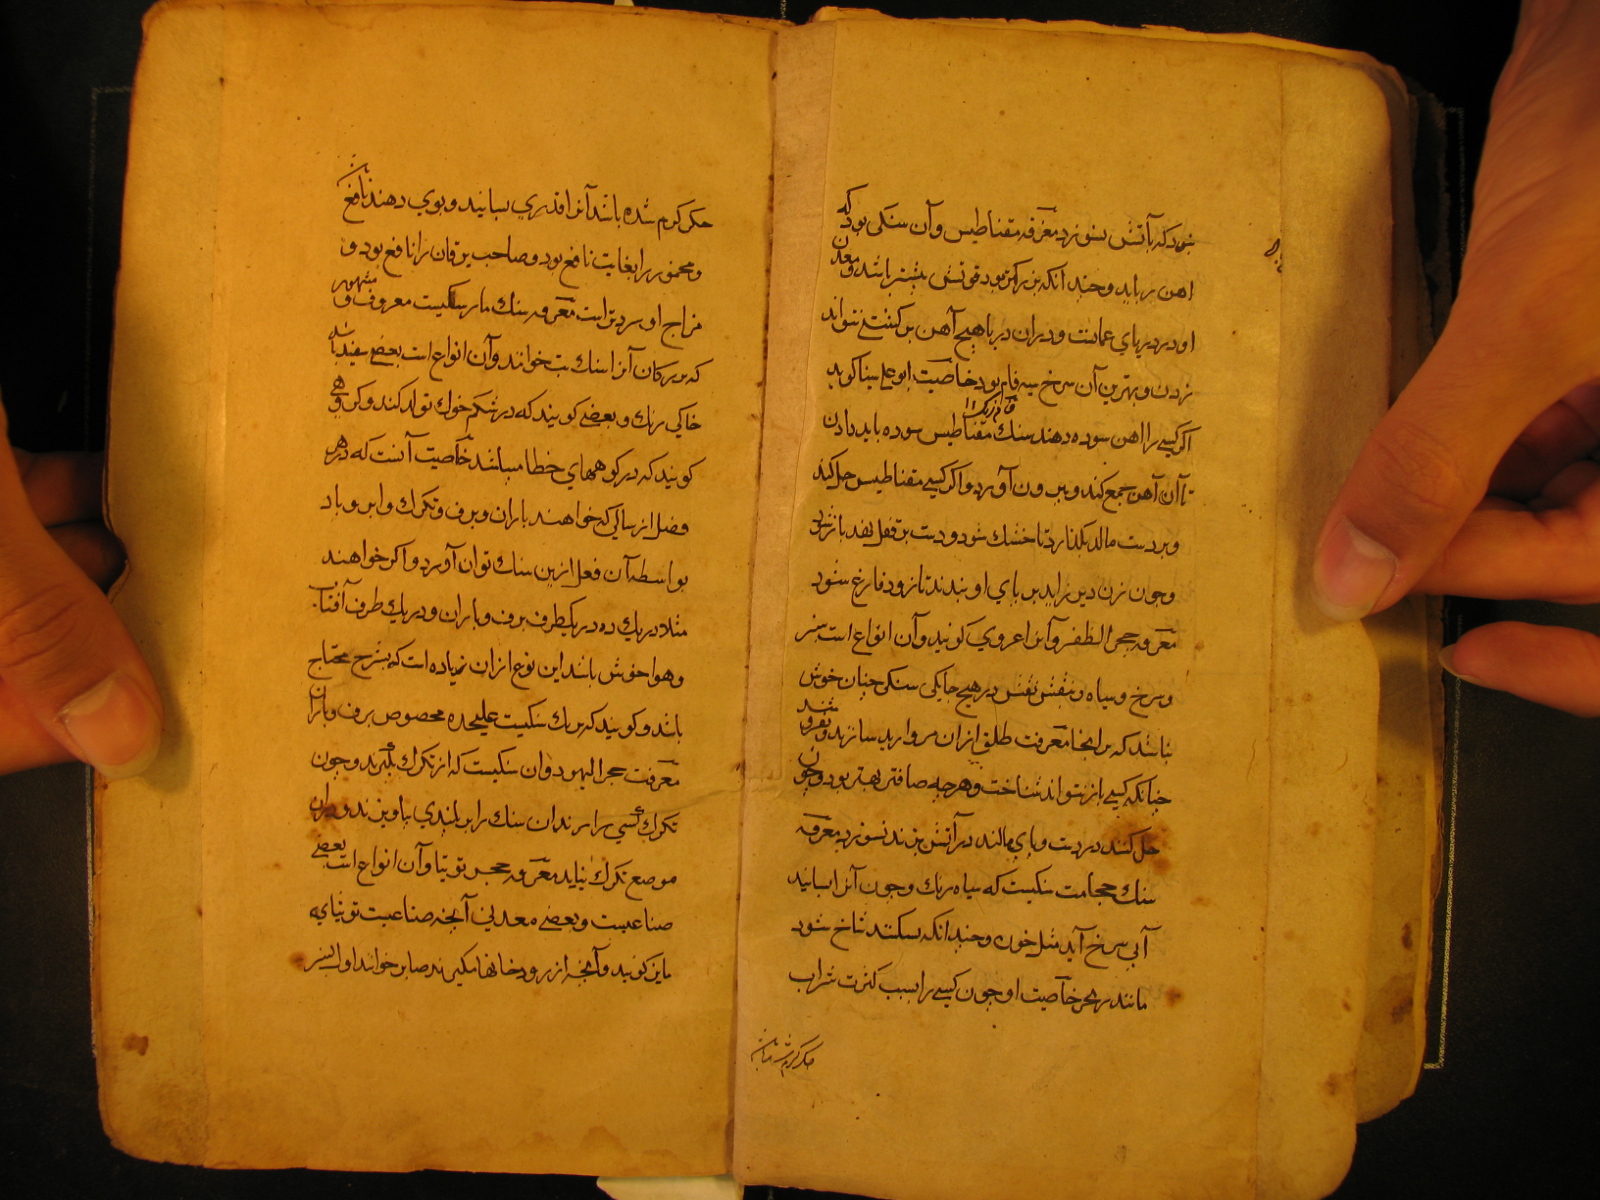 شود که بآتش بسوزد معرفه مقناطیس وآن سنکی بود که
اهن رباید وچند انکه بزرکتر بود قوتش بیشتر باشد ومعدن
او در دریای عمانست ودران دریا هیچ آهن بر کشتی نتواند
زدن وبهترین آن سرخ سیه فام بود خاصیت ابو علی سینا کوید
اکر کسی را اهن سوده دهند سنك مقناطیس سوده باید دادن
تا آن آهن جمع کند وبیرون آورد واکر کسی مقناطیس حل کند
وبر دست مالد بکذارد تا خشك شود ودست بر قفل نهد باز شود
وچون زن دیر زاید بر پای او بندند تا زود فارغ شود
معرفه حجر الظفر وآنرا عروی کویند وآن انواع است سبز
وسرخ وسیاه ومنقش نقش در هیچ جایکی سنکی چنان خوش
نباشد که بر انجا معرفت طلق ازان مروارید سازند وبفروشند
چنانکه کسی باز نتواند شناخت وهرچه صافتر بهتر بود وچون
حل کنند در دست وپای مالند در آتش نهند نسوزد معرفه
سنك حجامت سنکیست که سیاه رنك وچون آنرا بسایند
آبی سرخ آید مثل خون وچند انکه بشکنند شاخ شود
مانند خاصیت او چون کسی را بسبب کثرت شراب
جکر کرم شده باشد آنرا قدری بسایند وبوی دهند نافع
ومخمور را بغایت نافع بود وصاحب یرقان را نافع بود و
مزاج او سردتر است معرفه سنك مار سنکیست معروف ومشهور
که برکان آنرا سنك یت خوانند وآن انواع است بعضی سفید باشد
خاکی رنك وبعضی کویند که در شکم خوك تولد کند وکروهی
کویند که در کوههای خطا میباشد خاصیت آنست که در هر
فصل از سالی که خواهند باران وبرف وتکرك وابر وباد
بواسطه آن فعل ازین سنك توان آورد واکر خواهند
مثلا در یك ده در یکطرف برف وباران ودر یك طرف آفتاب
وهوا خوش باشد این نوع ازان زیاده است که بشرح محتاج
باشد وکویند که هر یك سنکیست علیحده مخصوص برف وباران
معرفت حجر الیهود وان سنکیست که از تکرك بکیرند وچون
تکرك بسیار ان سنك را بر بلندی بیاویزند دران
موضع تکرك نیاید معرفه حجر توتیا وآن انواع است بعضی
صناعیست وبعضی معدنی آنچه صناعیست توتیای
کویند وآنچه از رود خانها میکیرند صابر خوانند اورا